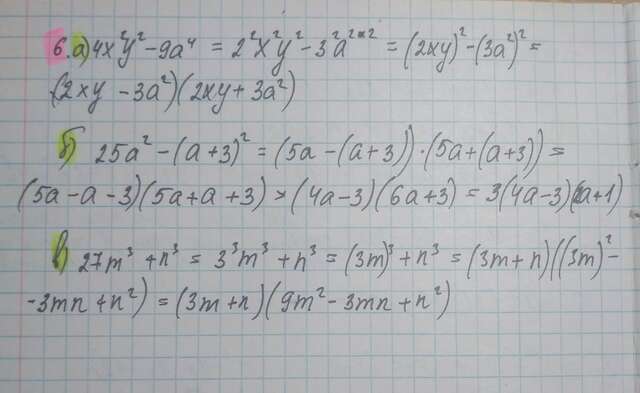 6. а) 4x²y² - 9a⁴ = 2²x²y² - 3²a²*² = (2xy)² - (3a²)² =
(2xy - 3a²)(2xy + 3a²)
б) 25a² - (a+3)² = (5a - (a+3))·(5a + (a+3)) =
(5a - a - 3)(5a + a + 3) = (4a - 3)(6a + 3) = 3(4a - 3)(2a + 1)
в) 27m³ + n³ = 3³m³ + n³ = (3m)³ + n³ = (3m + n)((3m)² -
- 3mn + n²) = (3m + n)(9m² - 3mn + n²)